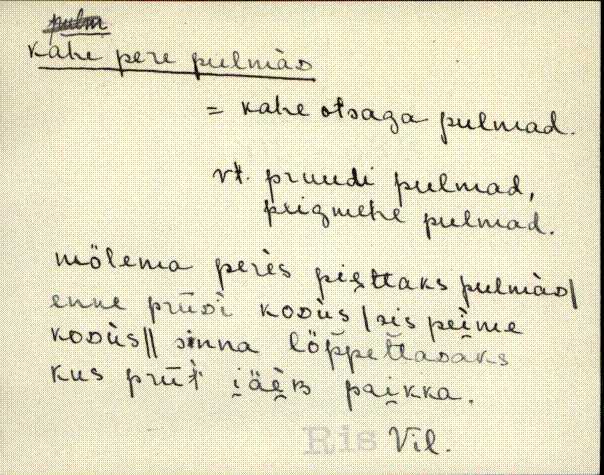 pulm
kahe pere pulmàD
= kahe otsaga pulmad.
vt. pruudi pulmad,
peigmehe pulmad.
mölema perès pìettaks pulmàD/
enne prūDi koDùs / sis peìme
koDùs // sinna löppettaDaks
kus prūt i̯äèB pai̯kka.
Ris Vil.